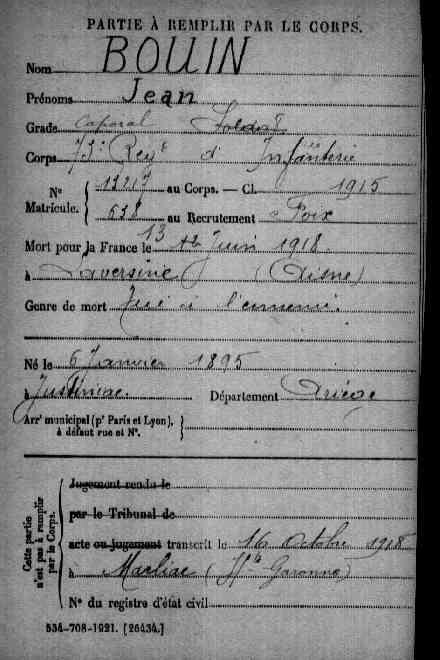 PARTIE À REMPLIR PAR LE CORPS.
Nom BOUIN
Prénoms Jean
Grade Caporal Soldat
Corps 73e Regt d'Infanterie
No Matricule. 13217 au Corps. — Cl. 1915
638 au Recrutement Foix
Mort pour la France le 13 Juin 1918
à Laversine (Aisne)
Genre de mort Tué à l'ennemi.
Né le 6 Janvier 1895
à Justiniac. Département Ariège
Arrt municipal (pr Paris et Lyon),
à défaut rue et No.
Cette partie n'est pas à remplir par le Corps.
Jugement rendu le
par le Tribunal de
acte ou jugement transcrit le 16 Octobre 1918
à Marliac (Hte Garonne)
No du registre d'état civil
534-708-1921. [26434.]